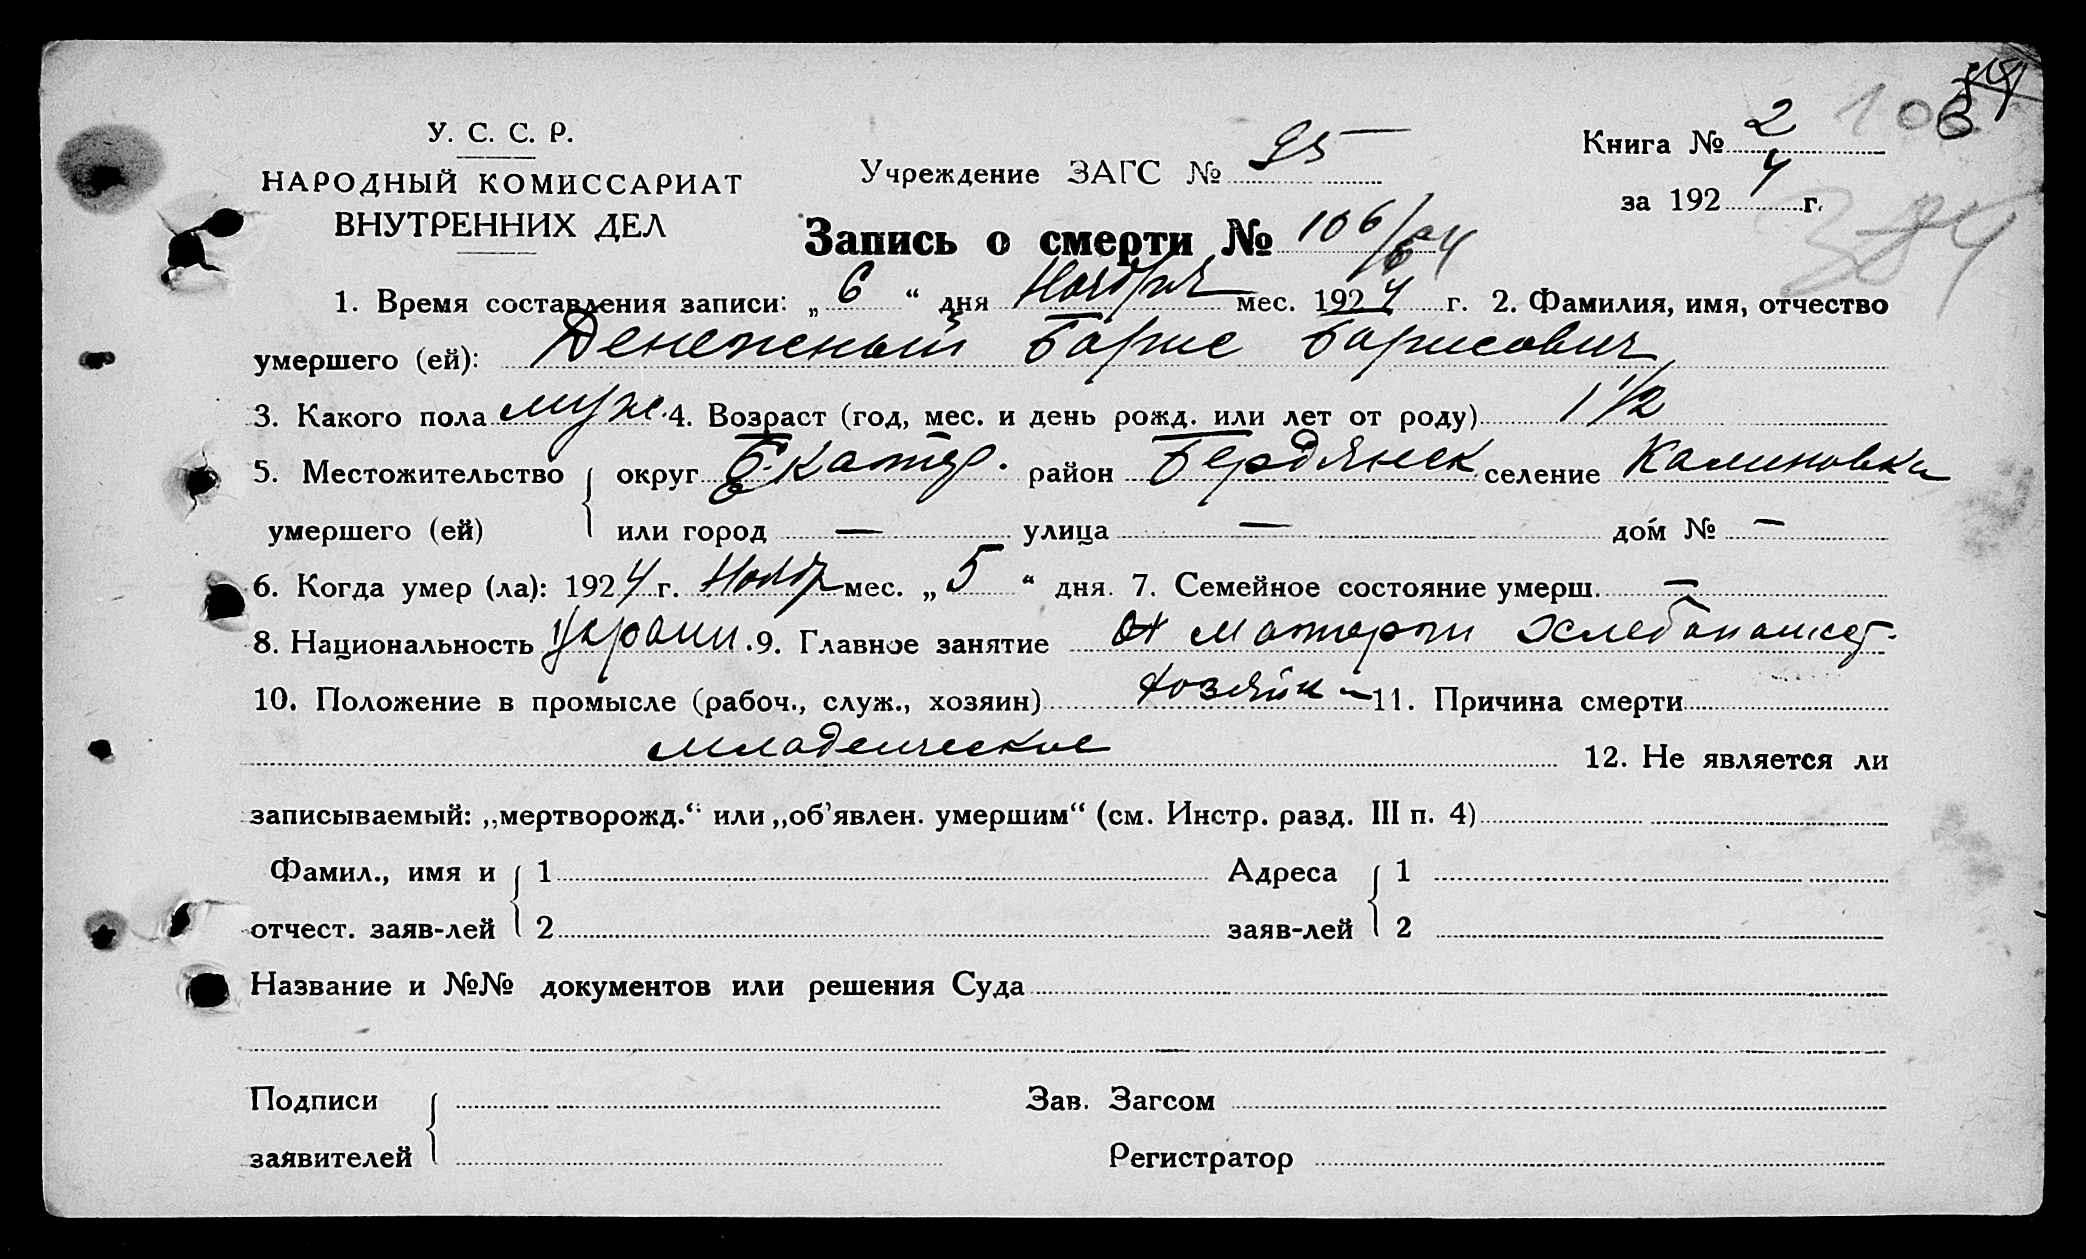 У. С. С. Р.
НАРОДНЫЙ КОМИССАРИАТ
ВНУТРЕННИХ ДЕЛ
Учреждение ЗАГС № 95
Книга № 2
106
за 1924 г.
384
Запись о смерти № 106/64
1. Время составления записи: „ 6 “ дня Ноября мес. 1924 г. 2. Фамилия, имя, отчество
умершего (ей): Денежный Борис Борисович
3. Какого пола муж. 4. Возраст (год, мес. и день рожд. или лет от роду) 1 1/2
5. Местожительство округ Екатер. район Бердянск селение Калиновка
умершего (ей) или город — улица — дом № —
6. Когда умер (ла): 1924 г. Нояб мес. „ 5 “ дня. 7. Семейное состояние умерш. —
8. Национальность украин. 9. Главное занятие матери
10. Положение в промысле (рабоч., служ., хозяин) хозяин 11. Причина смерти
младенческие
12. Не является ли
записываемый: „мертворожд.“ или „об’явлен. умершим“ (см. Инстр. разд. III п. 4)
Фамил., имя и 1 Адреса 1
отчест. заяв-лей 2 заяв-лей 2
Название и №№ документов или решения Суда
Подписи Зав. Загсом
заявителей Регистратор